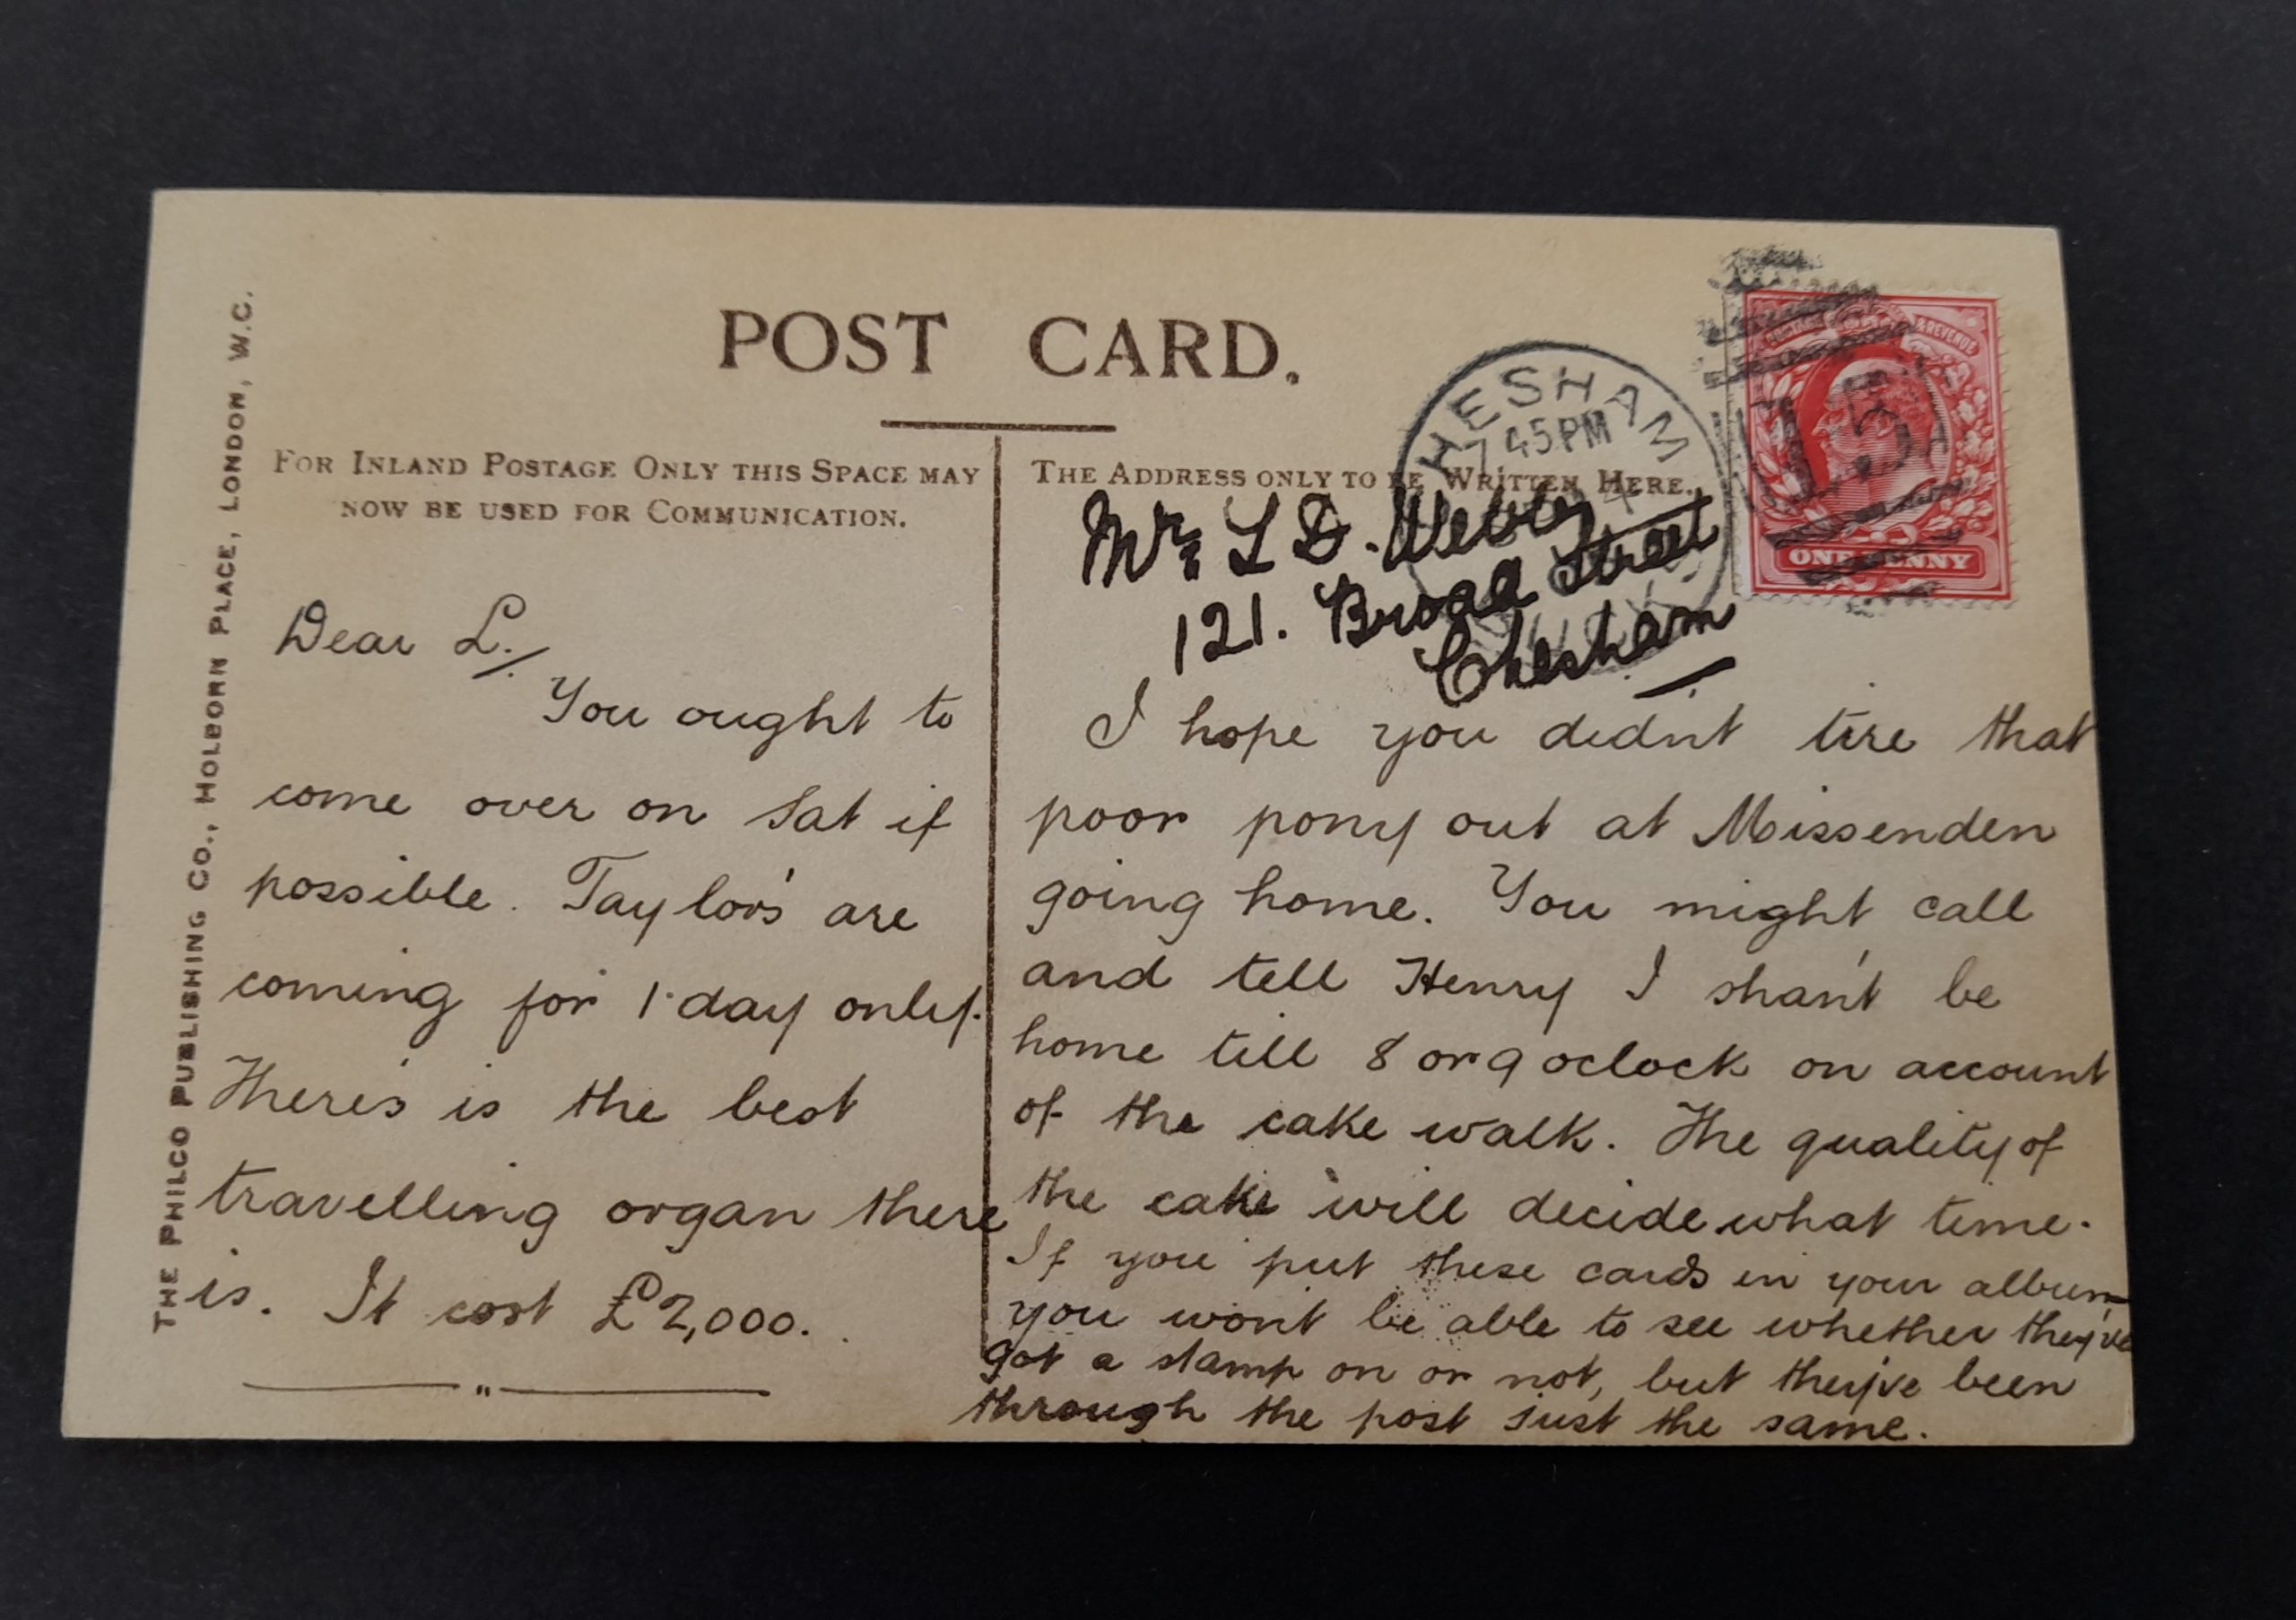 POST CARD.
THE PHILCO PUBLISHING CO., HOLBORN PLACE, LONDON, W.C.
FOR INLAND POSTAGE ONLY THIS SPACE MAY
NOW BE USED FOR COMMUNICATION.
Dear L./.
You ought to
come over on Sat if
possible. Taylor's are
coming for 1 day only.
There's is the best
travelling organ there
is. It cost £2,000.
THE ADDRESS ONLY TO BE WRITTEN HERE.
HESHAM
7 45PM
ONE PENNY
Mr L D. Webb
121. Broad Street
Chesham
I hope you didn't tire that
poor pony out at Missenden
going home. You might call
and tell Henry I shan't be
home till 8 or 9 oclock on account
of the cake walk. The quality of
the cake will decide what time.
If you put these cards in your album
you won't be able to see whether they've
got a stamp on or not, but they've been
through the post just the same.